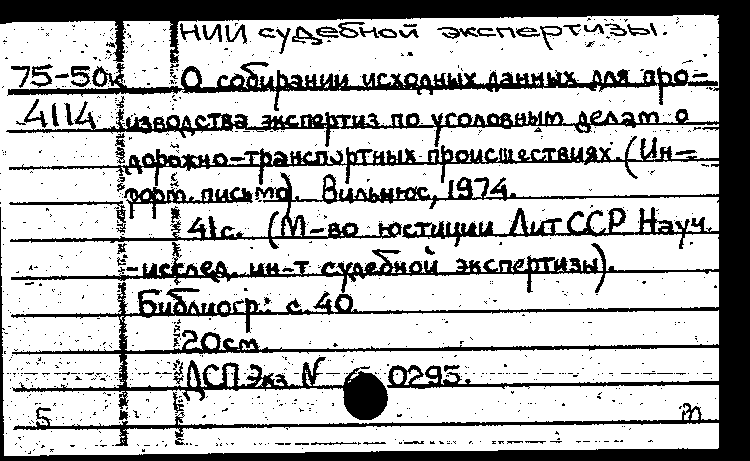 НИИ судебной экспертизы.
75-50к О собирании исходных данных для про-
4114 изводства экспертиз по уголовным делам о
дорожно-транспортных происшествиях. (Ин-
форм. письмо). Вильнюс, 1974.
41с. (М-во юстиции ЛитССР Науч.
-исслед. ин-т судебной экспертизы).
Библиогр.: с. 40
20см.
ДСП Экз N 0295.